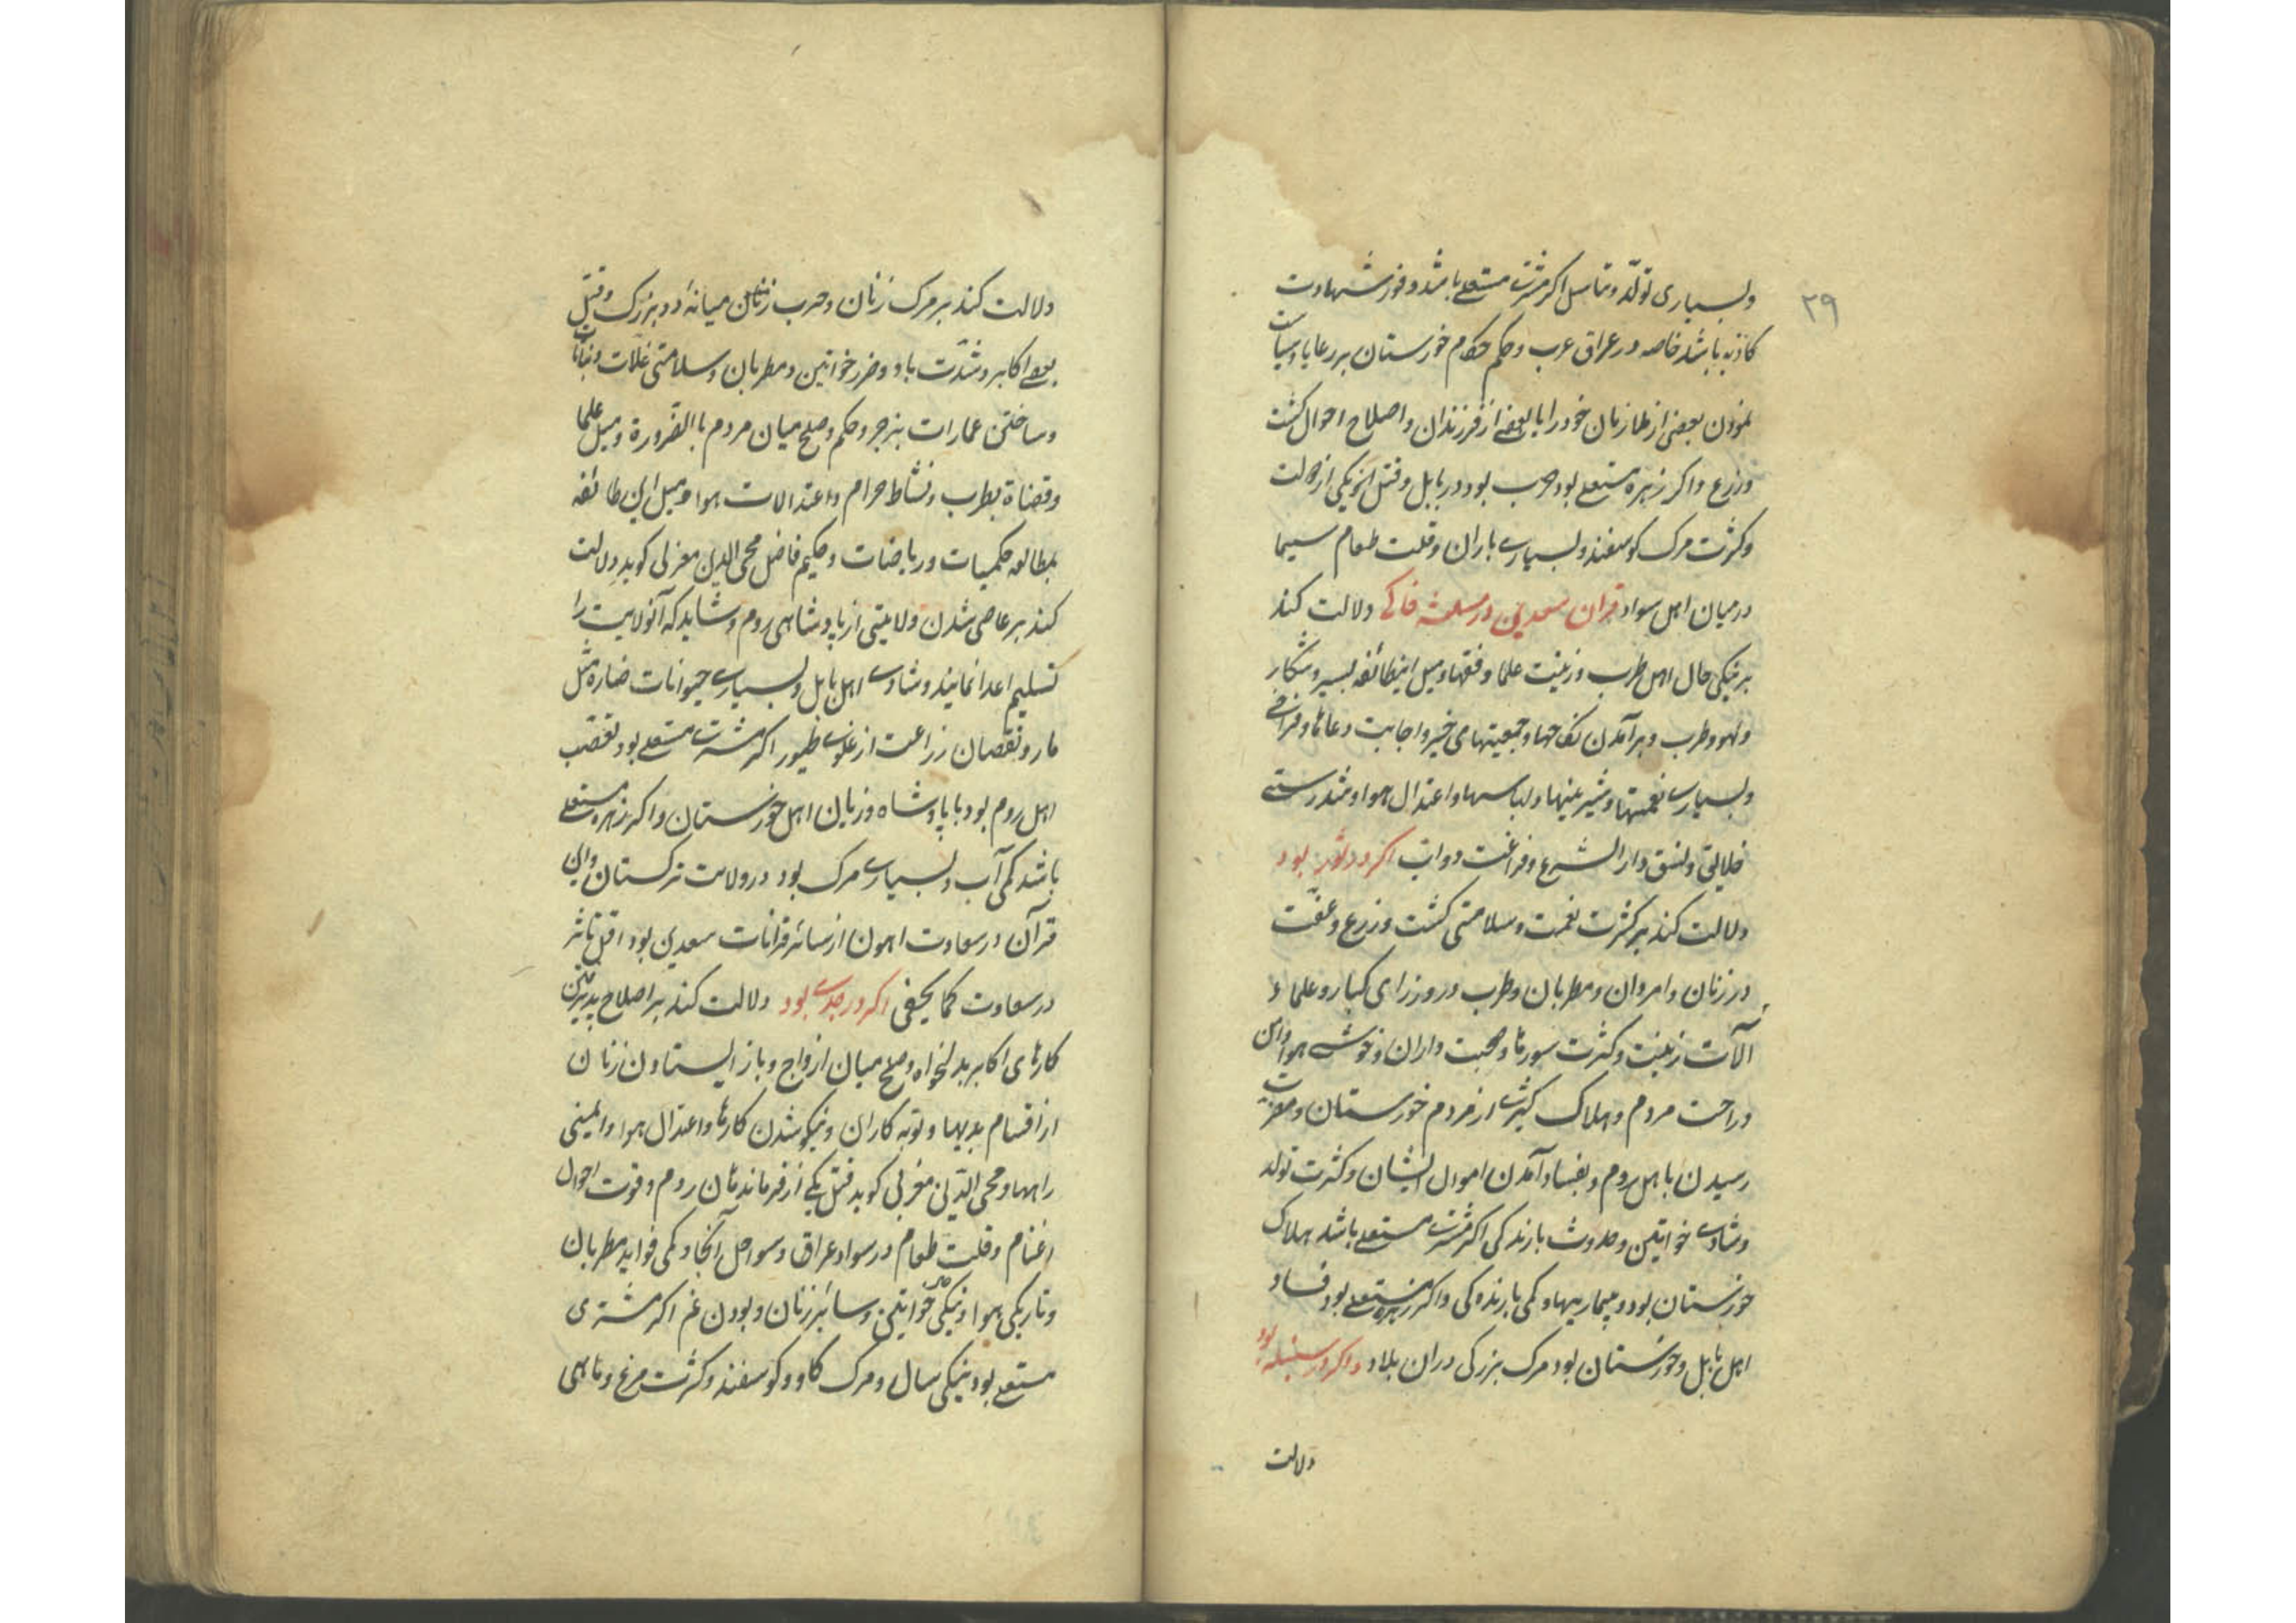 ۲۹
وبسیاری تولّد و تناسل اکر مشتری مستعلی باشد وفور شهادت
کاذبه باشد خاصه در عراق عرب و حکم حکام خوزستان بر رعایا وسیاست
نمودن بعضی از ظلمه زنان خود را با بعضی از فرزندان و اصلاح احوال کشت
وزرع واکر زهره مستعلی بود حرب بود در بابل و قتل
وکثرت مرک کوسفند وبسیاری باران وقلت طعام سیما
در میان اهل سواد قران سعدین در مثلثه خاکی دلالت کند
بر نیکی حال اهل طرب وزینت علما و فقها ومیل اینطائفه بسیر وشکار
ولهو وطرب وبرآمدن نکاحها وجمعیتهای خیر واجابت دعاها وفراخی
وبسیاری نعمتها وشیرینیها ولباسها واعتدال هوا وتندرستی
خلایق ونسق دار الشرع وفراغت دواب اکر در ثور بود
دلالت کند بر کثرت نعمت وسلامتی کشت وزرع وعفّت
در زنان وامردان ومطربان وطرب در وزرای کبار وعلما و
آلات زینت وکثرت سورها وصحبت داران وخوشی هوا وامن
وراحت مردم وهلاک کثیری از مردم خوزستان ومضرت
رسیدن باهل روم وبفساد آمدن اموال ایشان وکثرت تولد
وشادی خواتین وحدوث بارندکی اکر مشتری مستعلی باشد هلاک
خوزستان بود وبیماریها وکمی بارندکی واکر زهره مستعلی بود فساد
اهل بابل وخوزستان بود مرک بزرکی در ان بلاد واکر در سنبله بود
دلالت
دلالت کند بر مرک زنان وحرب زنان میانهٔ دو بزرک وقتل
بعضی اکابر وشدّت باد وضرر خواتین ومطربان وسلامتی غلّات ونباتات
وساختن عمارات بزجر وحکم وصلح میان مردم باالضّرورة ومیل علما
وقضاة بطرب ونشاط حرام واعتدالات هوا ومیل این طائفه
بمطالعه حکمیات وریاضات وحکیم فاضل محی الدین مغربی کوید دلالت
کند بر عاصی شدن ولایتی از پادشاهی روم وشاید که آنولایت را
تسلیم اعدا نمایند وشادی اهل بابل وبسیاری حیوانات ضاره مثل
مار ونقصان زراعت از غلوی طیور اکر مشتری مستعلی بود تعصب
اهل روم بود با پادشاه وزیان اهل خوزستان واکر زهره مستعلی
باشد کمی آب وبسیاری مرک بود در ولایت ترکستان واین
قرآن در سعادت اهون از سائر قرانات سعدین بود اقل تاثر
در سعادت کما یخفی اکر در جدی بود دلالت کند بر اصلاح پذیرفتن
کارهای اکابر بدلخواه وصلح میان ازواج وباز ایستادن زنان
از اقسام بدیها وتوبه کاران ونیکو شدن کارها واعتدال هوا وایمنی
راهها ومحی الدّین مغربی کوید قتل یکی از فرماندهان روم وقوت احوال
اغنام وقلت طعام در سواد عراق وسواحل آنجا وکمی فواید مطربان
وتاریکی هوا ونیکی حال خواتین وسائر زنان وبودن غم اکر مشتری
مستعلی بود نیکی سال ومرک کاو وکوسفند وکثرت مرغ وماهی